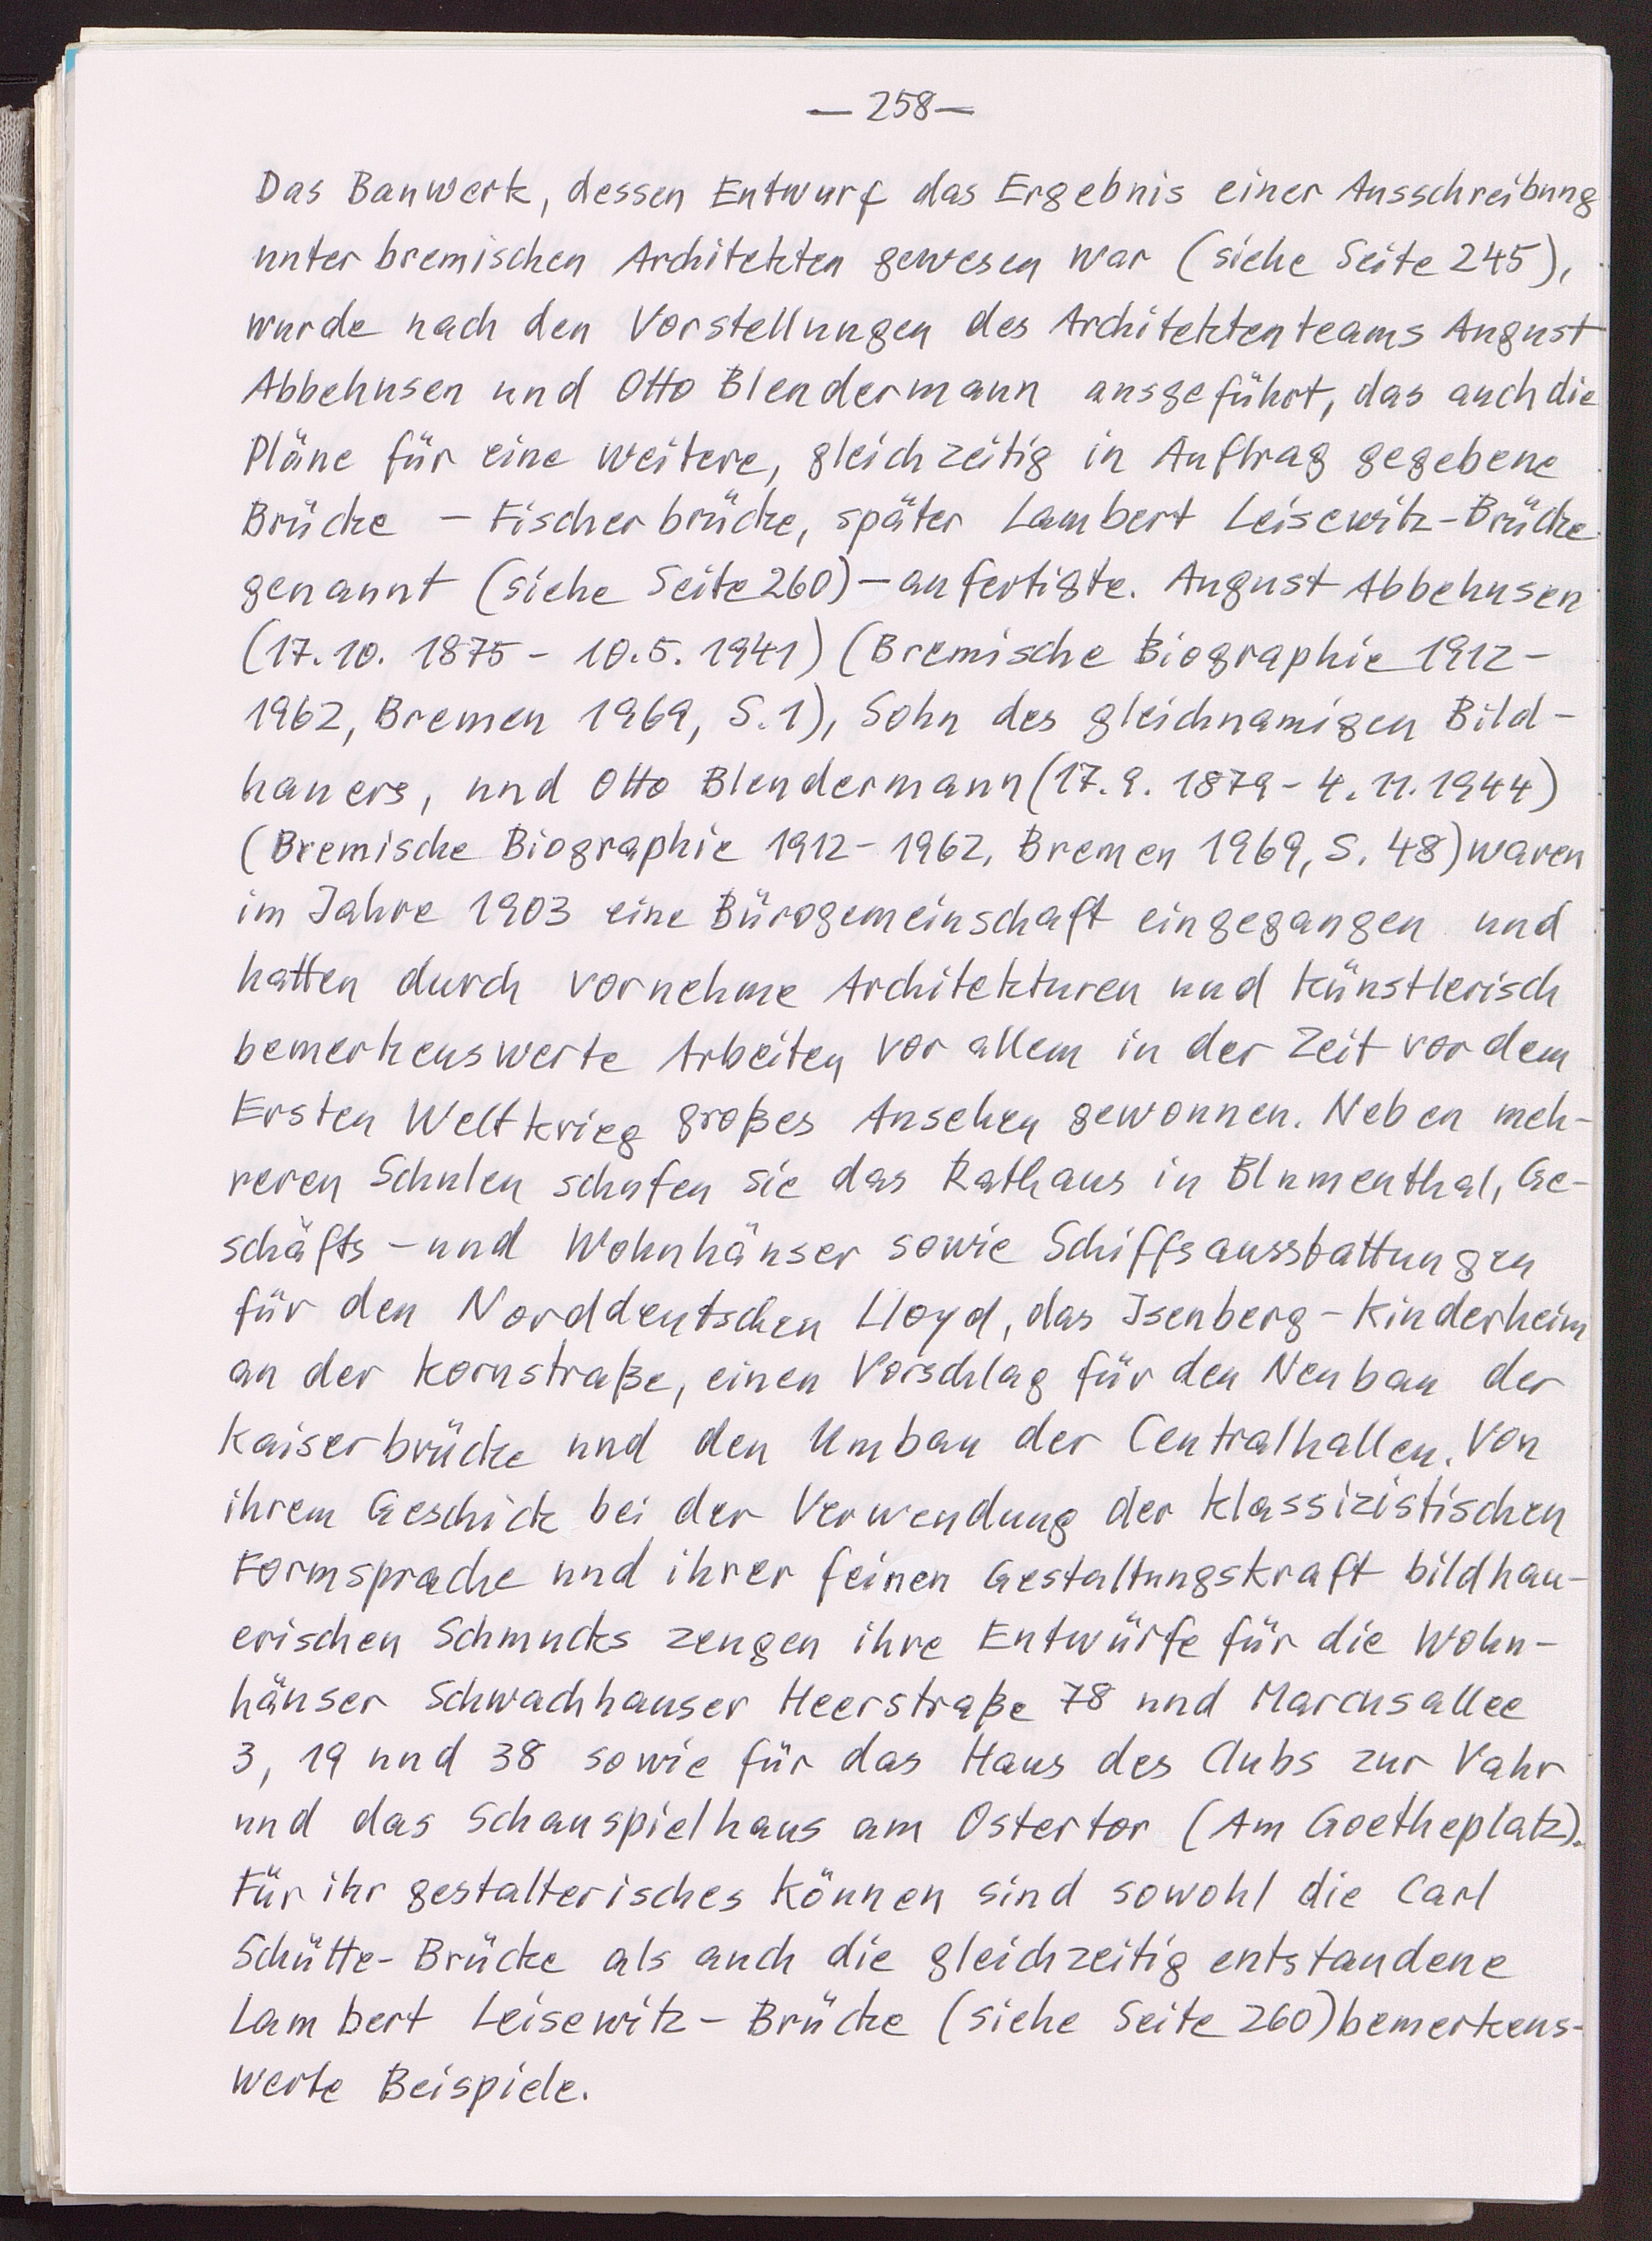 — 258 —
Das Bauwerk, dessen Entwurf das Ergebnis einer Ausschreibung
unter bremischen Architekten gewesen war (siehe Seite 245),
wurde nach den Vorstellungen des Architektenteams August
Abbehusen und Otto Blendermann ausgeführt, das auch die
Pläne für eine weitere, gleichzeitig in Auftrag gegebene
Brücke – Fischerbrücke, später Lambert Leisewitz-Brücke
genannt (siehe Seite 260) – anfertigte. August Abbehusen
(17.10. 1875 - 10.5. 1941) (Bremische Biographie 1912-
1962, Bremen 1969, S. 1), Sohn des gleichnamigen Bild-
hauers, und Otto Blendermann (17.9. 1879 - 4.11.1944)
(Bremische Biographie 1912-1962, Bremen 1969, S. 48) waren
im Jahre 1903 eine Bürogemeinschaft eingegangen und
hatten durch vornehme Architekturen und künstlerisch
bemerkenswerte Arbeiten vor allem in der Zeit vor dem
Ersten Weltkrieg großes Ansehen gewonnen. Neben meh-
reren Schulen schufen sie das Rathaus in Blumenthal, Ge-
schäfts- und Wohnhäuser sowie Schiffsausstattungen
für den Norddeutschen Lloyd, das Isenberg-Kinderheim
an der Kornstraße, einen Vorschlag für den Neubau der
Kaiserbrücke und den Umbau der Centralhallen. Von
ihrem Geschick bei der Verwendung der klassizistischen
Formsprache und ihrer feinen Gestaltungskraft bildhau-
erischen Schmucks zeugen ihre Entwürfe für die Wohn-
häuser Schwachhauser Heerstraße 78 und Marcusallee
3, 19 und 38 sowie für das Haus des Clubs zur Vahr
und das Schauspielhaus am Ostertor (Am Goetheplatz).
Für ihr gestalterisches Können sind sowohl die Carl
Schütte-Brücke als auch die gleichzeitig entstandene
Lambert Leisewitz-Brücke (siehe Seite 260) bemerkens-
werte Beispiele.